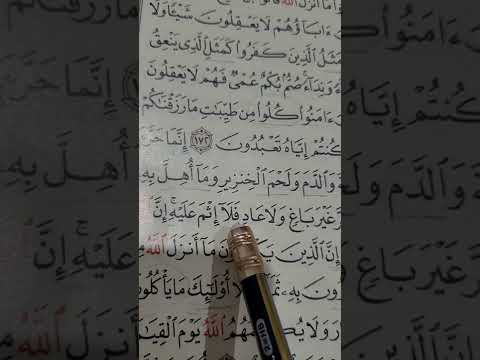 أَنزَلَ ٱللَّهُ
ءَابَآؤُهُمْ لَا يَعْقِلُونَ شَيْـًٔا وَلَا
مَثَلُ ٱلَّذِينَ كَفَرُوا۟ كَمَثَلِ ٱلَّذِى يَنْعِقُ
وَنِدَآءً صُمٌّۢ بُكْمٌ عُمْىٌ فَهُمْ لَا يَعْقِلُونَ
ءَامَنُوا۟ كُلُوا۟ مِن طَيِّبَٰتِ مَا رَزَقْنَٰكُمْ
كُنتُمْ إِيَّاهُ تَعْبُدُونَ ١٧٢ إِنَّمَا حَرَّ
وَٱلدَّمَ وَلَحْمَ ٱلْخِنزِيرِ وَمَآ أُهِلَّ بِهِۦ
غَيْرَ بَاغٍ وَلَا عَادٍ فَلَآ إِثْمَ عَلَيْهِ ۚ إِنَّ
إِنَّ ٱلَّذِينَ مَآ أَنزَلَ ٱللَّهُ
بِهِۦ أُو۟لَٰٓئِكَ مَا يَأْكُلُو
وَلَا ٱللَّهُ يَوْمَ ٱلْقِيَٰ